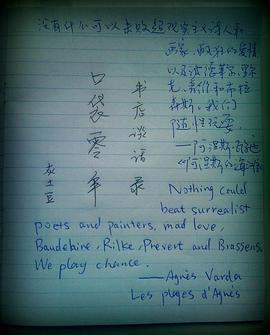 没有什么可以击败超现实主义诗人和
画家,疯狂的爱情
以及波德莱尔、里尔
克、普维和布拉
森斯。我们
随性玩耍。
——阿涅斯·瓦尔达
《阿涅斯的海滩》
书店谈话录
口袋零年
土豆
Nothing could
beat surrealist
poets and painters, mad love,
Baudelaire, Rilke, Prevert and Brassens.
We play chance.
——Agnès Varda
Les plages d'Agnès